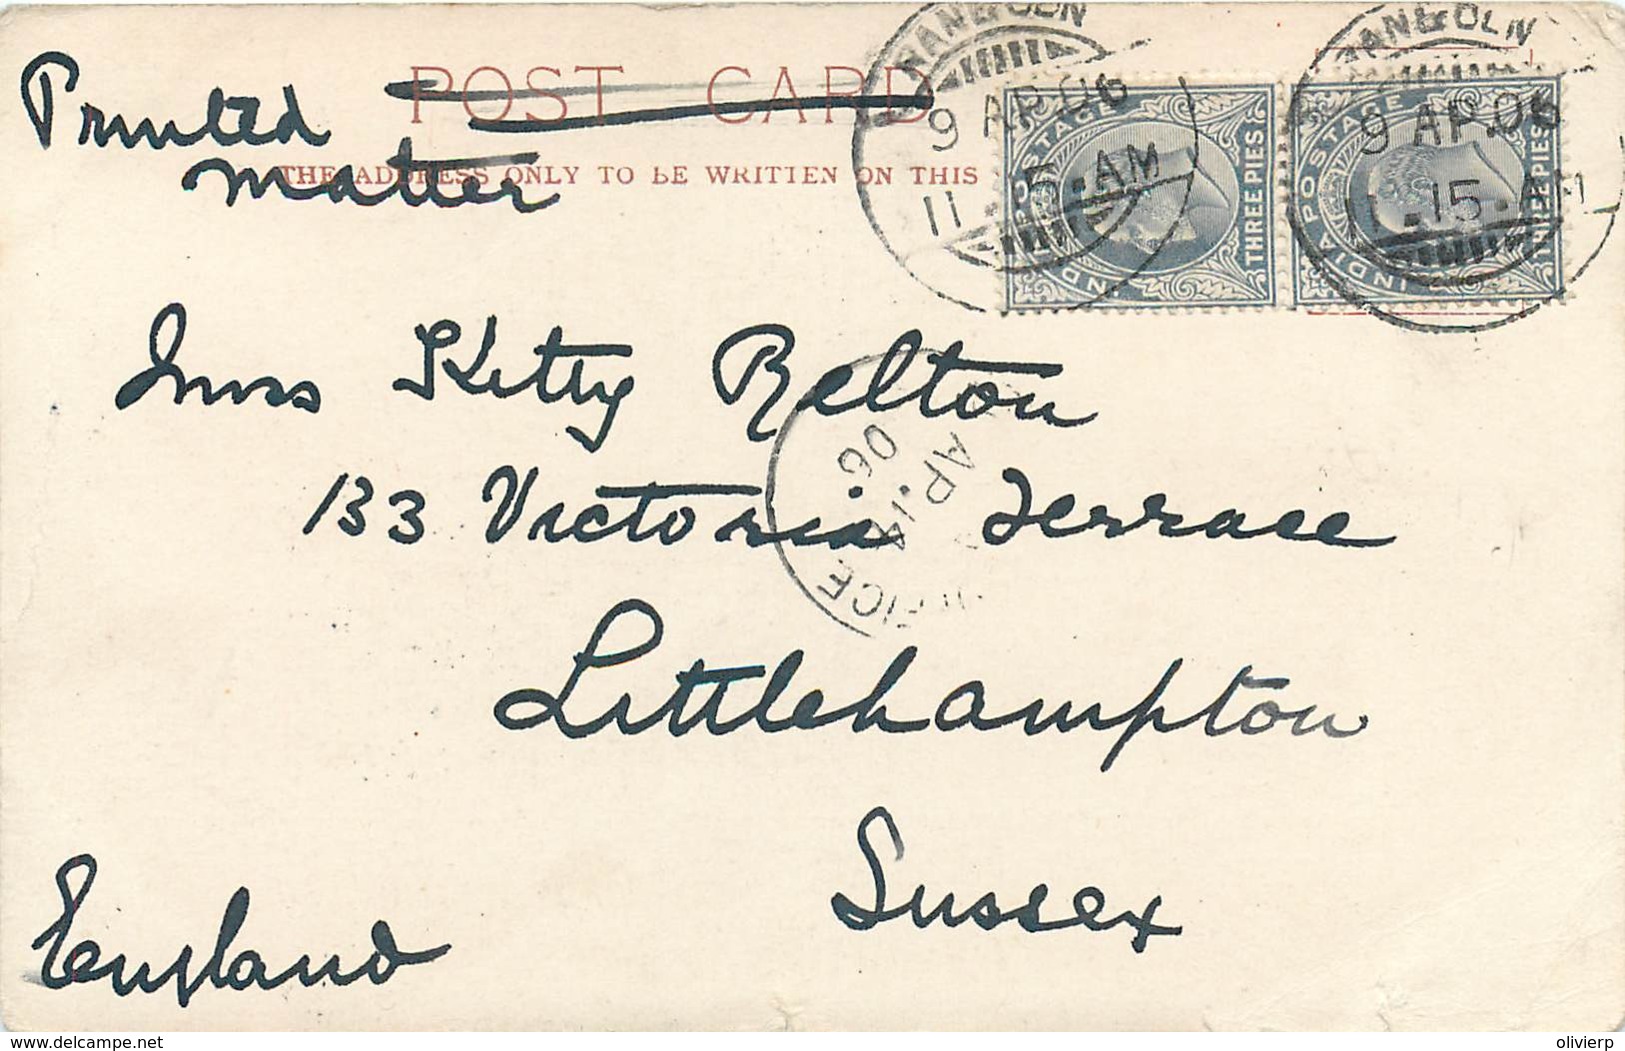 POST CARD
Printed
matter
THE ADDRESS ONLY TO BE WRITTEN ON THIS
9 AP.06
11.15.AM
9 AP.06
11.15.AM
INDIA POSTAGE
THREE PIES
INDIA POSTAGE
THREE PIES
Miss Kitty Relton
133 Victoria Terrace
AP.14
06
Littlehampton
Sussex
England
delcampe.net
olivierp